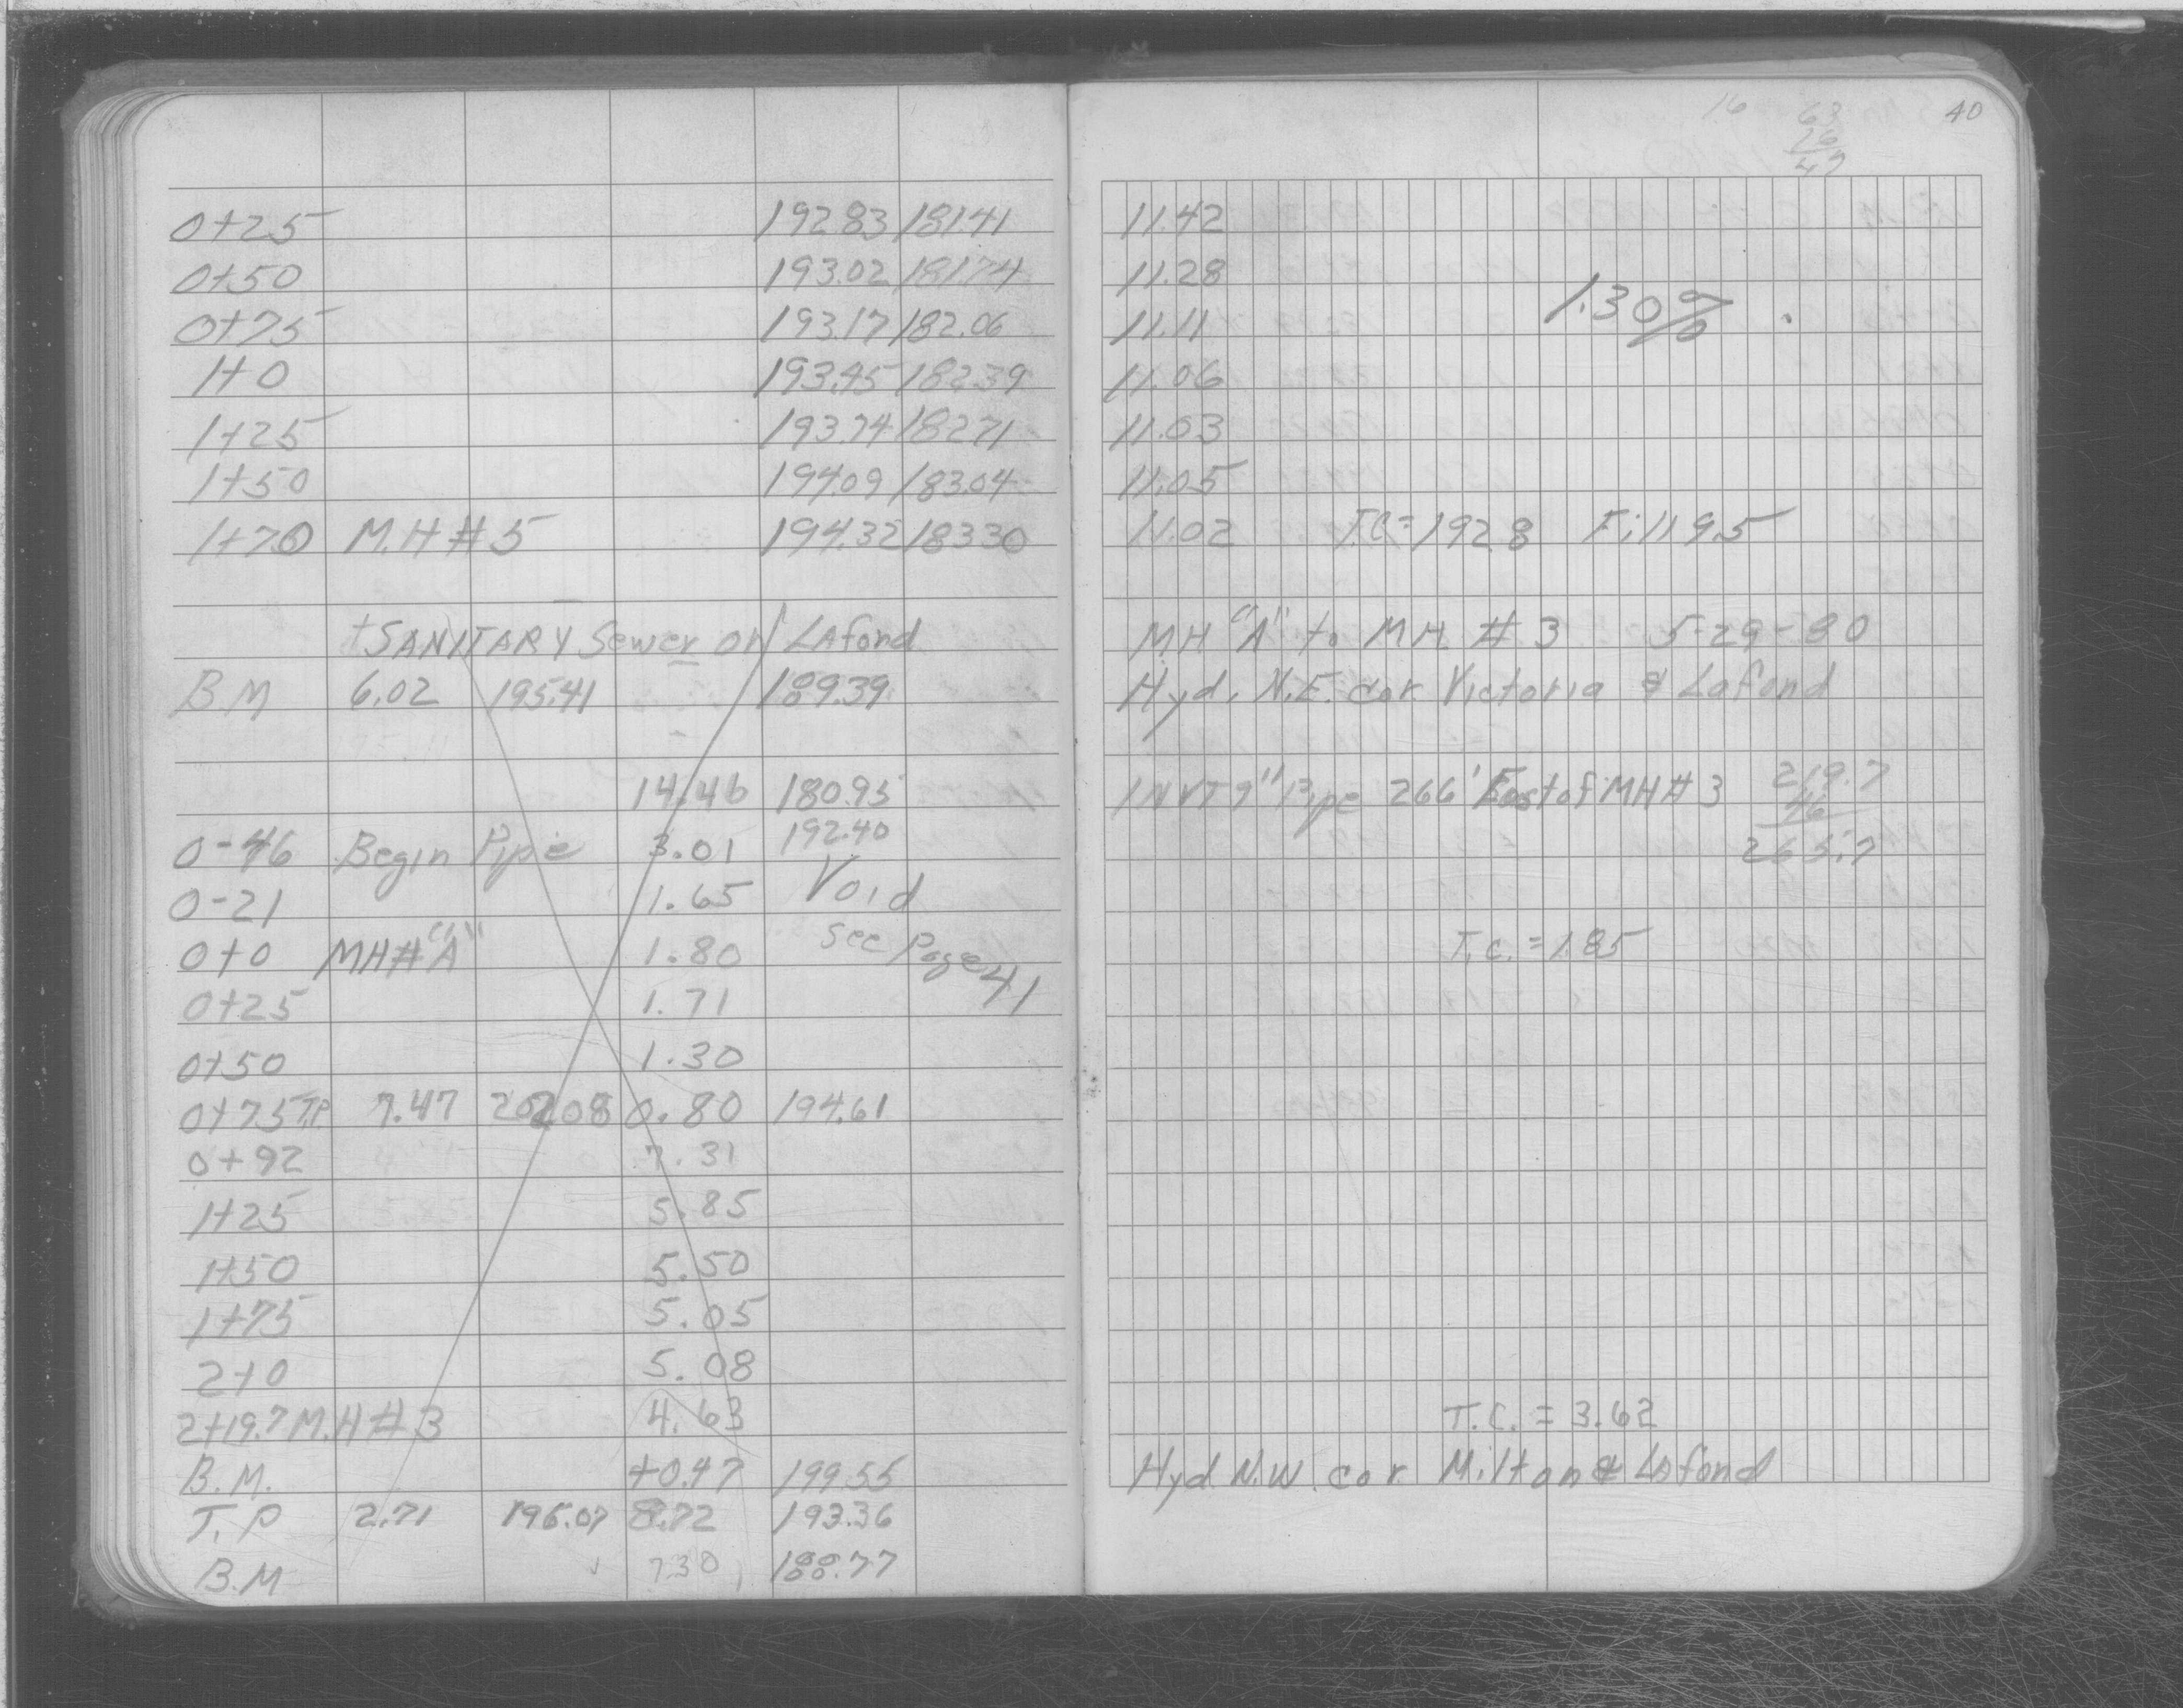 40
16 63
26
47
0+25 192.83 181.41 11.42
0+50 193.02 181.74 11.28
1.30%
0+75 193.17 182.06 11.11
1+0 193.45 182.39 11.06
1+25 193.74 182.71 11.03
1+50 194.09 183.04 11.05
1+70 M.H #5 194.32 183.30 11.02 T.C=192.8 Fill 9.5
SANITARY Sewer on LAfond MH "A" to MH #3 5-29-80
B.M 6.02 195.41 189.39 Hyd. N.E. cor. Victoria & Lafond
14.46 180.95 INVT 9" Pipe 266' East of MH#3 219.7
46
265.7
0-46 Begin Pipe 3.01 192.40
0-21 1.65 Void
0+0 MH# "A" 1.80 See Page 41 T.C. = 1.85
0+25 1.71
0+50 1.30
0+75 T.P 7.47 202.08 0.80 194.61
0+92 7.31
1+25 5.85
1+50 5.50
1+75 5.05
2+0 5.08
2+19.7 M.H #3 4.63 T.C. = 3.62
B.M. +0.47 199.55 Hyd N.W. cor Milton & Lafond
T.P 2.71 196.07 8.72 193.36
B.M 7.30 188.77